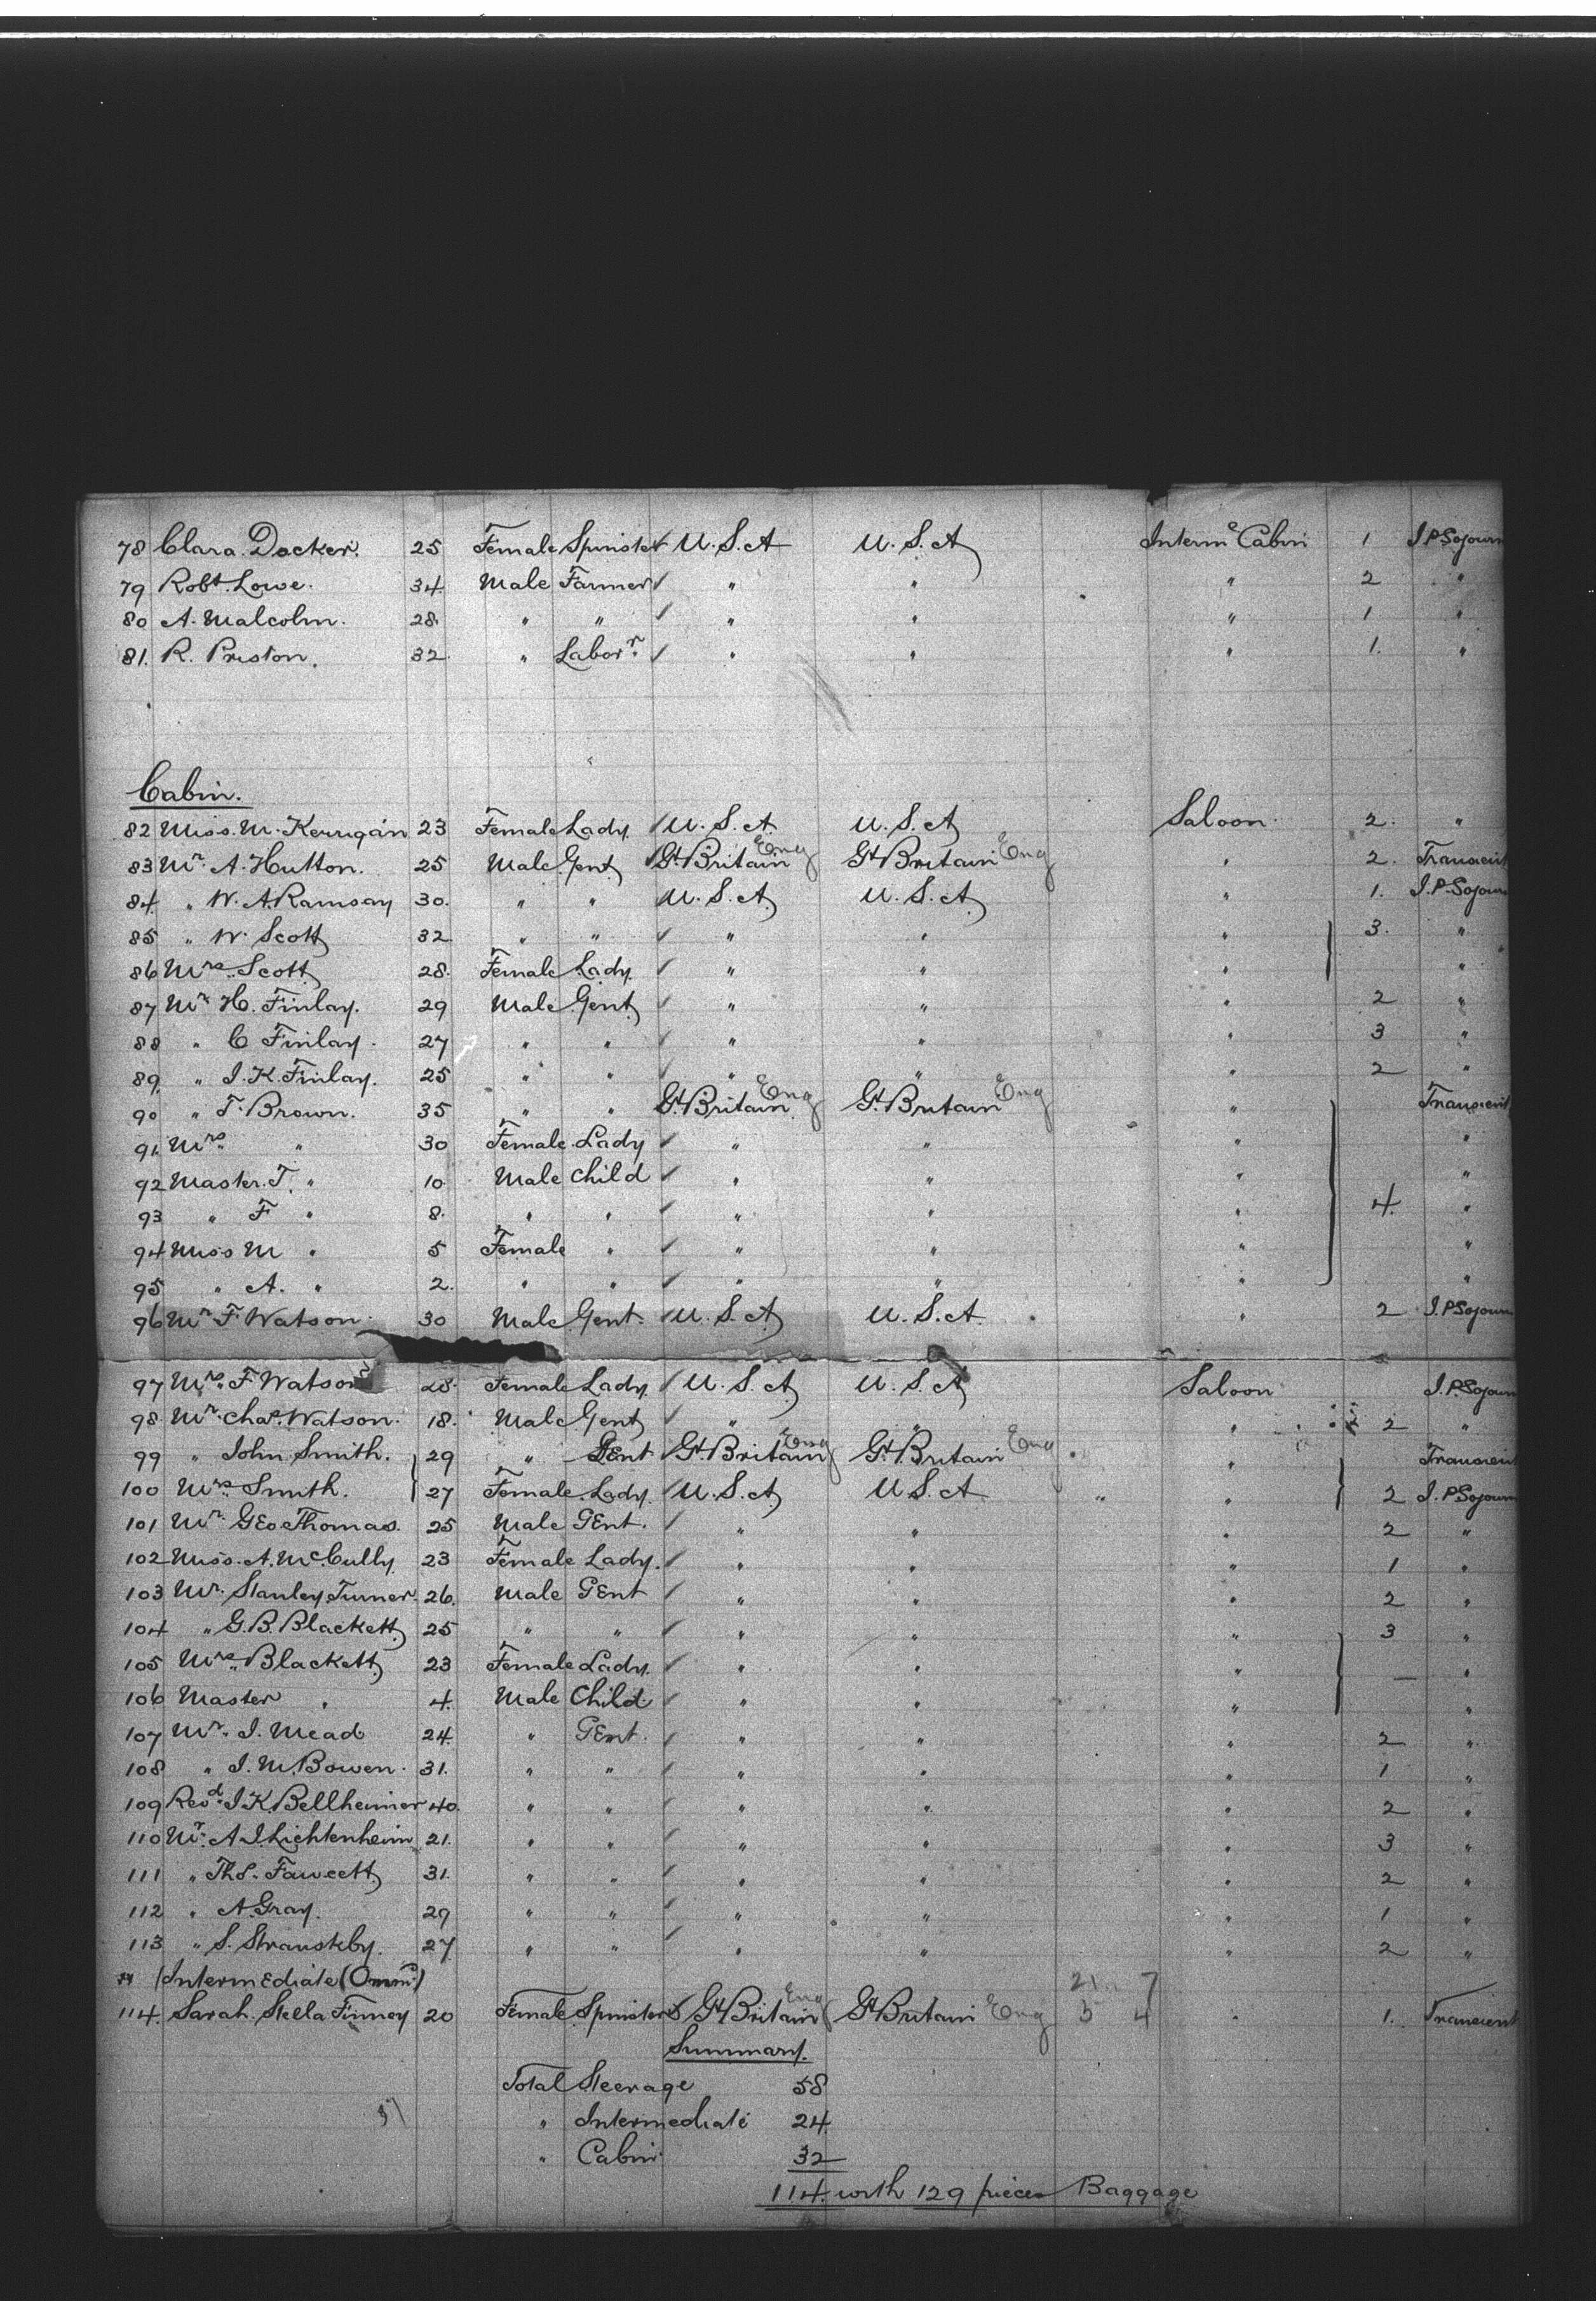 78 Clara Docker. 25 Female Spinster U.S.A U.S.A Interme Cabin 1 I.P.Sojourn
79 Robt. Lowe. 34. Male Farmer " " " 2 "
80 A. Malcolm. 28. " " " " " 1 "
81. R. Preston. 32. " Labor.r " " " 1. "
Cabin.
82 Miss. M. Kerrigan 23 Female Lady. U.S.A U.S.A Saloon. 2. "
83 Mr. A. Hutton. 25 Male Gent. Gt. Britain Eng Gt. Britain Eng " 2. Transient
84. " W. A. Ramsay 30. " " U.S.A. U.S.A. " 1. I.P.Sojourn
85 " W. Scott 32 " " " " " 3. "
86 Mrs. Scott 28. Female Lady. " " " "
87 Mr. H. Finlay. 29 Male Gent. " " " 2 "
88 " C Finlay. 27 " " " " " 3 "
89. " I. K. Finlay. 25 " " " " " 2 "
90 " T. Brown. 35 " " Gt. Britain Eng Gt. Britain Eng " Transient
91. Mrs. " 30 Female Lady " " " "
92 Master. T. " 10 Male Child " " " "
93 " F " 8. " " " " " 4. "
94 Miss M " 5 Female " " " " "
95 " A. " 2. " " " " " "
96 Mr. F Watson. 30 Male Gent. U.S.A. U.S.A. " 2 I.P.Sojourn
97 Mrs. F Watson 28. Female Lady. U.S.A. U.S.A Saloon I.P.Sojourn
98. Mr. Chas. Watson. 18. Male Gent " " " 2 "
99 " John Smith. 29 " Gent Gt. Britain Eng Gt. Britain Eng " Transient
100 Mrs. Smith. 27 Female Lady. U.S.A. U.S.A. " " 2 I.P.Sojourn
101 Mr. Geo. Thomas. 25 Male GEnt. " " " 2 "
102 Miss. A. McCully. 23 Female Lady. " " " 1 "
103 Mr. Stanley Turner. 26. Male GEnt " " " 2 "
104 " G. B. Blackett. 25 " " " " " 3 "
105 Mrs. Blackett 23 Female Lady. " " " — "
106 Master " 4. Male Child. " " " "
107 Mr. I. Mead 24. " GEnt. " " " 2 "
108 " I. M. Bowen. 31. " " " " " 1 "
109 Revd. I K. Bellheimer 40. " " " " " 2 "
110 Mr. A I. Lichtenheim 21. " " " " " 3 "
111 " Thos. Fawcett. 31. " " " " " 2 "
112 " A. Gray. 29 " " " " " 1 "
113 " S. Stranskby. 27. " " " " " 2 "
Intermediate 21 7
114. Sarah. Stella Finney 20 Female Spinster Gt Britain Eng Gt Britain Eng 5 4 " 1. Transient
Summary.
Total Steerage 58
" Intermediate 24.
" Cabin. 32
114. with 129 pieces Baggage